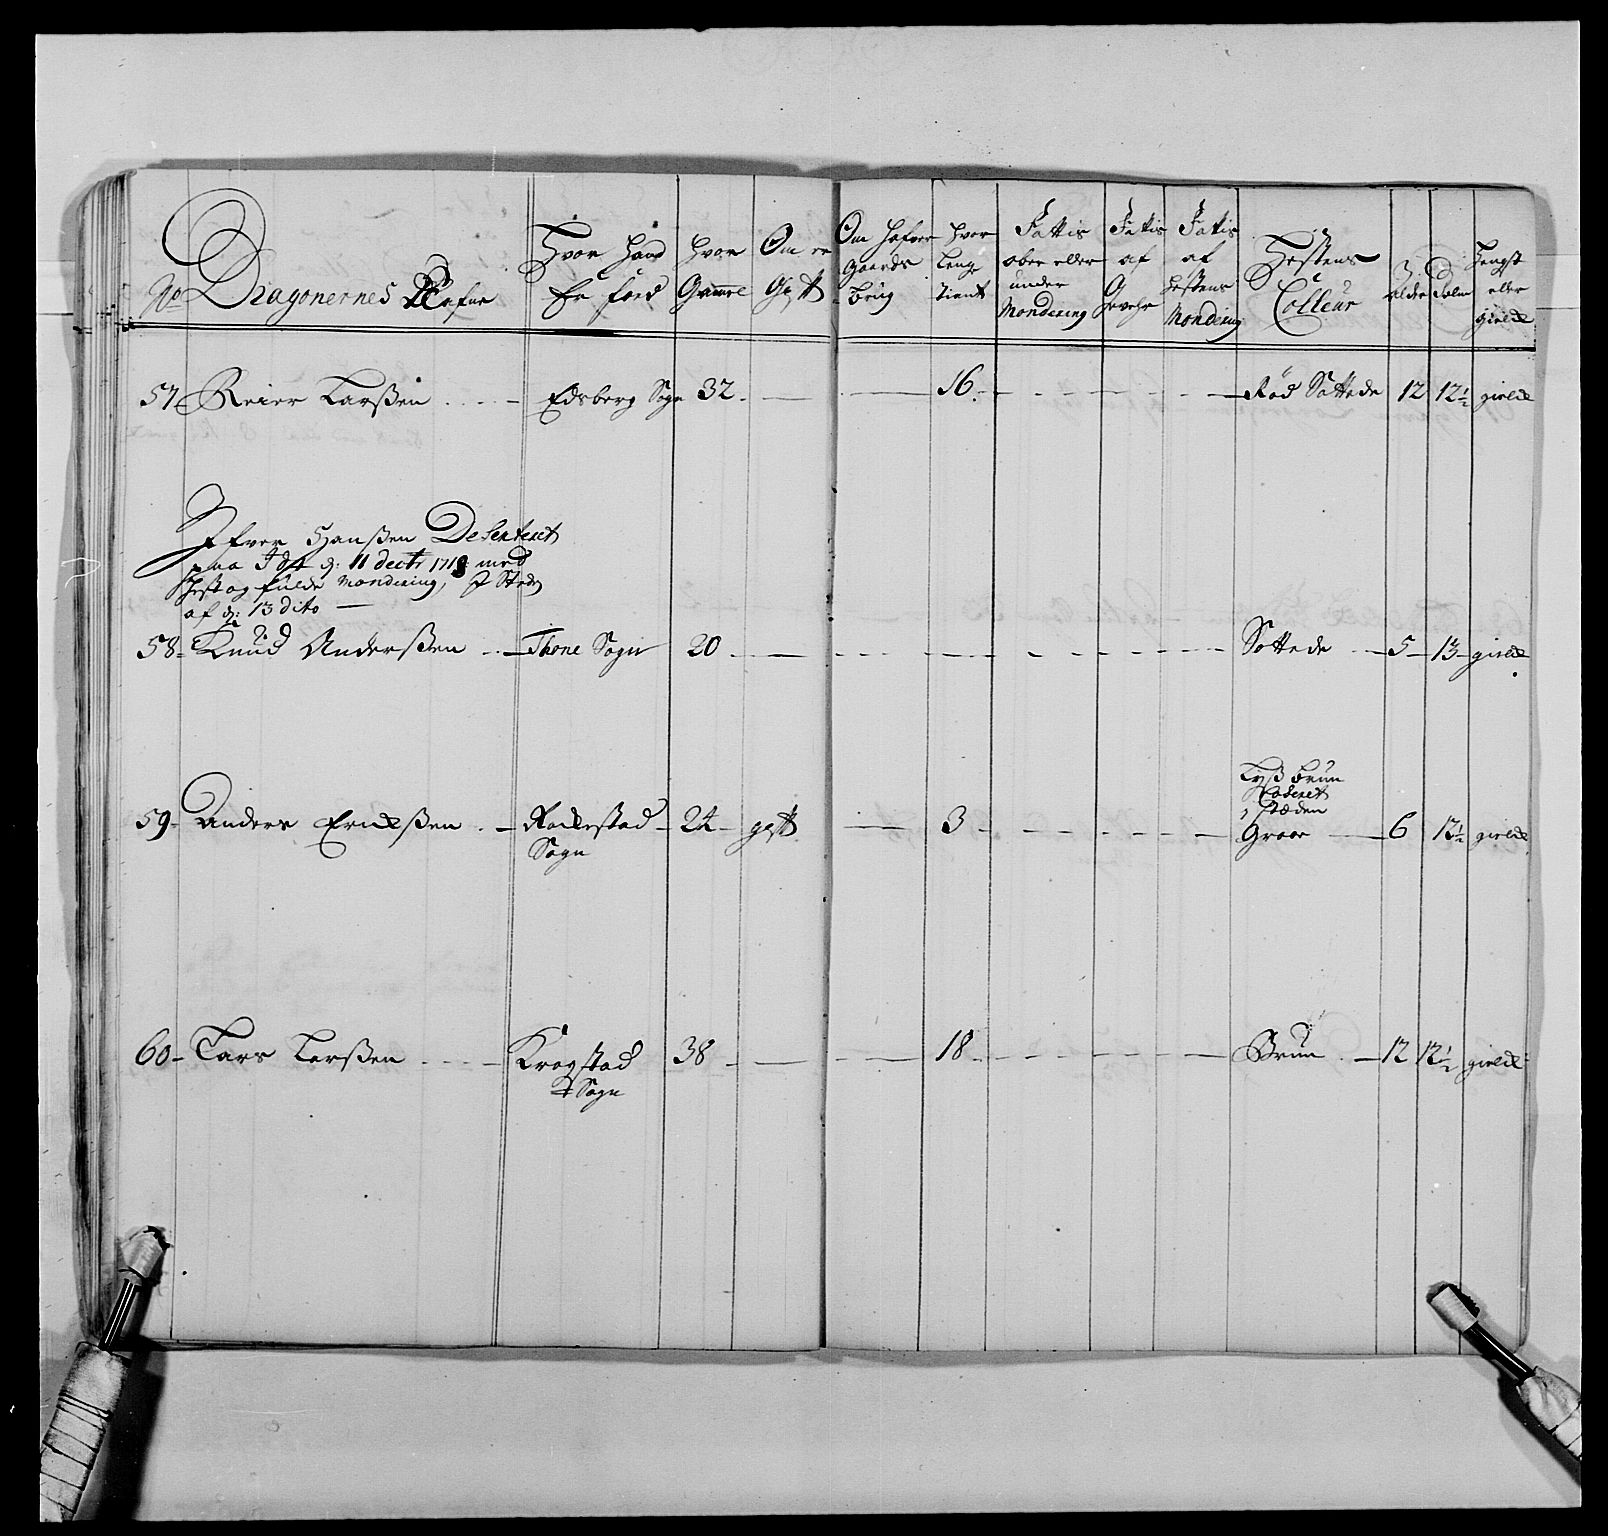 No Dragonernes Nafne
Hvor hand
Er föed
Hvor
Gammel
Om er
Gift
Om hafver
gaards
brug
Hvor
lenge
tient
Fattis
ober eller
under
Mondering
Fattis
af
Gevehr
Fattis
af
Hestens
Mondering
Hestens
Colleur
Alder
Hengst
eller
gieldt
57 Reier Larßen Edsberg Sogn 32 16 Röd Sottede 12 12½ gieldt
Ifver Hanßen Deserteret
paa d: 11 dectr 1718 med
Hest og fulde Mondering, I Steden
af d: 13 dito
58 Knud Anderßen Thone Sogn 20 Sottede 5 13 gieldt
Lyß brun
Caseret
i stæden
59 Anders Erichßen Rackestad 24 gift 3 Graae 6 12½ gieldt
Sogn
60 Lars Larßen Krogstad 38 18 Brun 12 12½ gieldt
Sogn